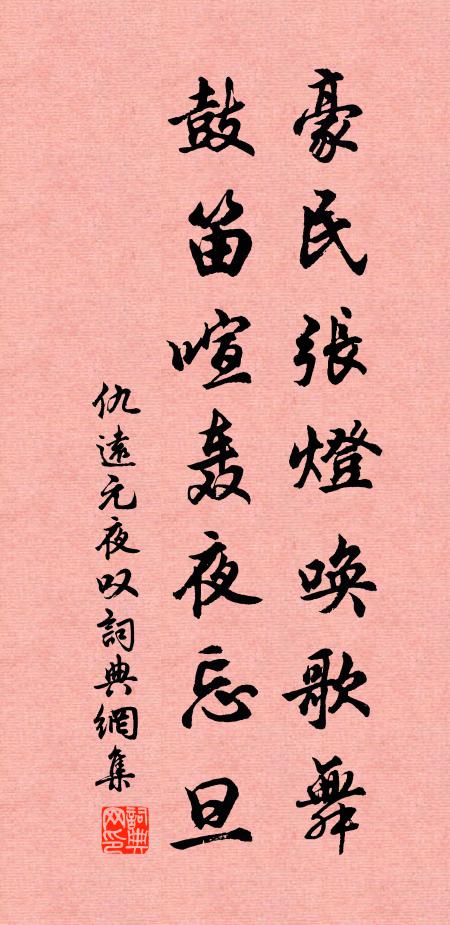 豪民張燈唤歌舞
鼓笛喧轰夜忘旦
仇遠元夜叹詞典網集
詞典网印